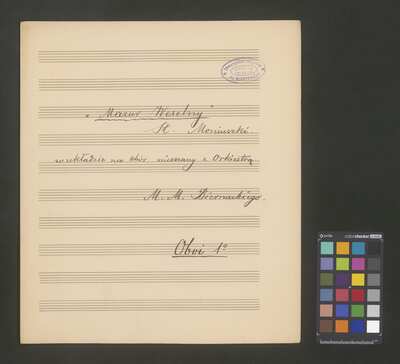 „Mazur Weselny"
St. Moniuszki.
w układzie na chór mieszany z Orkiestrą
M. M. Biernackiego.
Oboi 1º